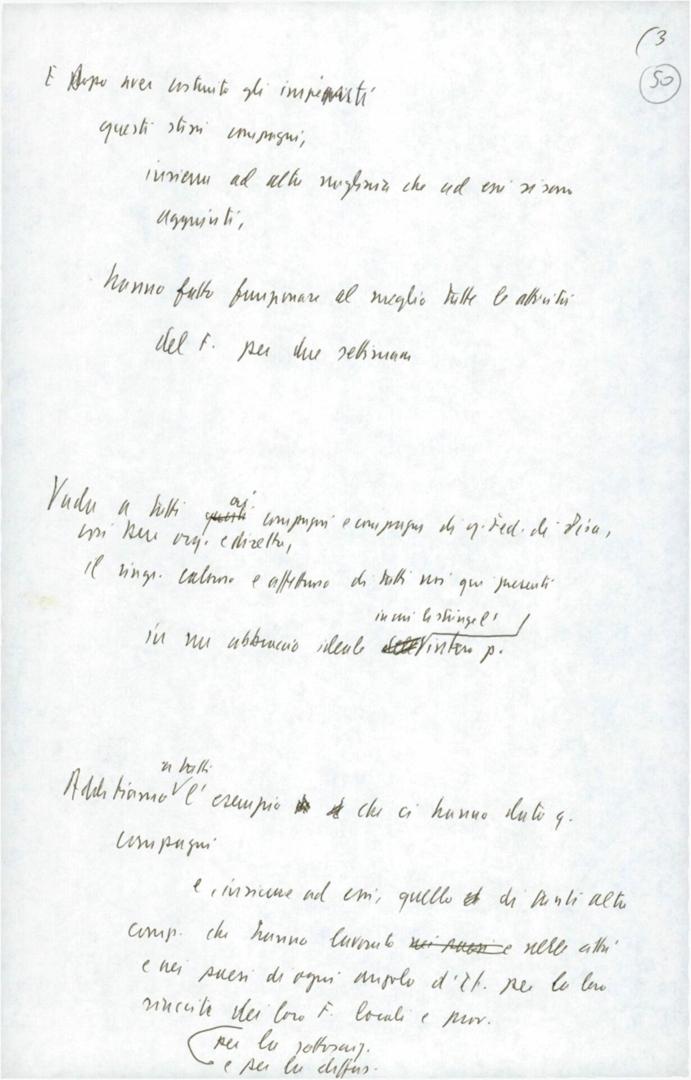 (3
50
E Dopo aver costruito gli impianti
questi stessi compagni,
insieme ad altre migliaia che ad essi si sono
aggiunti,
hanno fatto funzionare al meglio tutte le attività
del F. per due settimane
Vada a tutti questi ai compagni e compagne di q. Fed. di Pisa,
così bene org. e diretta,
il ringr. caloroso e affettuoso di tutti noi qui presenti
in cui li stringe l'
in un abbraccio ideale intero p.
a tutti
Additiamo l' esempio che ci hanno dato q.
compagni
e, insieme ad essi, quello di tanti altri
comp. che hanno lavorato nei paesi e nelle città
e nei paesi di ogni angolo d'It. per la loro
riuscita dei loro F. locali e prov.
per la sottoscriz.
e per la diffus.